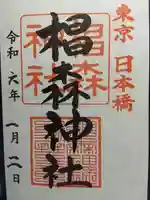 東京 日本橋
椙森神社
椙森
神社
令和六年 一月二日